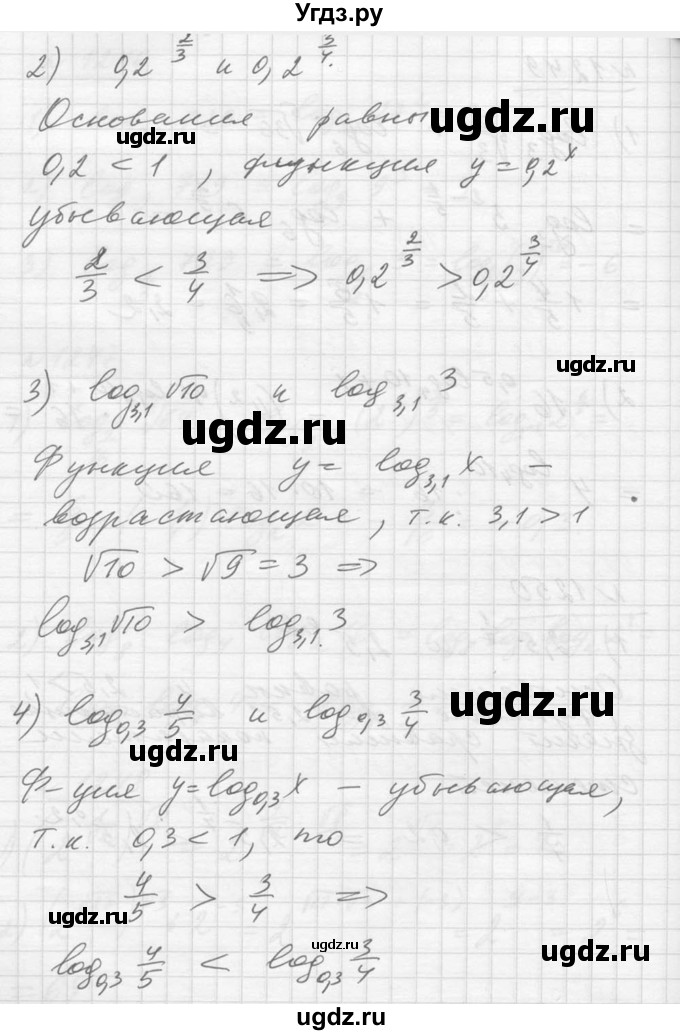 Угдз.ру
2) 0,2^(2/3) и 0,2^(3/4).
Основания равны
ugdz.ru
0,2 < 1 , функция y = 0,2^x
ugdz.ru
убывающая
2/3 < 3/4 ⟹ 0,2^(2/3) > 0,2^(3/4)
ugdz.ru
3) log_3,1 √10 и log_3,1 3
ugdz.ru
Функция y = log_3,1 x –
возрастающая, т.к. 3,1 > 1
√10 > √9 = 3 ⟹
ugdz.ru
log_3,1 √10 > log_3,1 3
4) log_0,3 4/5 и log_0,3 3/4
ugdz.ru
ugdz.ru
Ф-ция y = log_0,3 x – убывающая,
т.к. 0,3 < 1, то
4/5 > 3/4 ⟹
ugdz.ru
log_0,3 4/5 < log_0,3 3/4
ugdz.ru
ugdz.ru
ugdz.ru